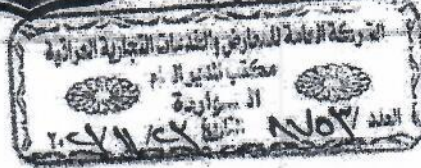 الشركة العامة للمعارض والخدمات التجارية العراقية
مكتب المدير العام
الـــواردة
العدد / ٨٧٥٣ التاريخ ٢٠٢٧/١١/٢٢